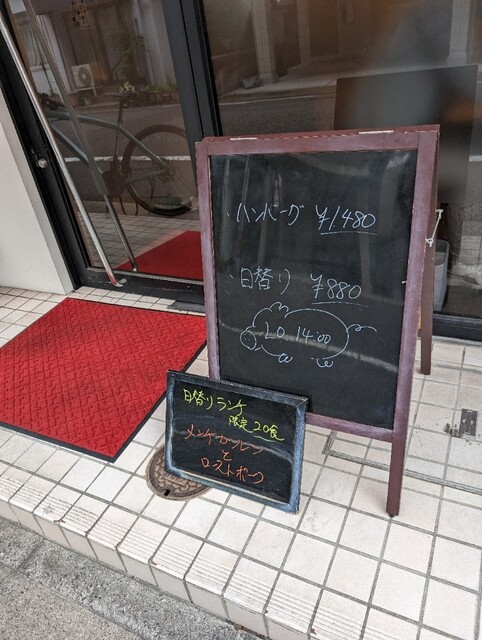 ・ハンバーグ ¥1,480
・日替り ¥880
LO 14:00
日替りランチ
限定20食
メンチカツレツ
と
ローストポーク